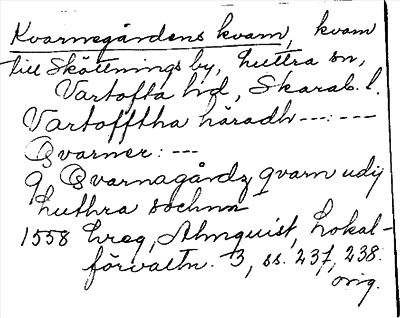 Kvarnegårdens kvarn, kvarn
till Sköttnings by, Luttra sn,
Vartofta hd, Skarab. l.
Vartofftha häradh ---: ---
Qvarner: ---
9 Qvarnagårdz qvarn udij
Luthra sochnn
1558 Lreg, Almquist, Lokal-
förvaltn. 3, ss. 237, 238.
orig.